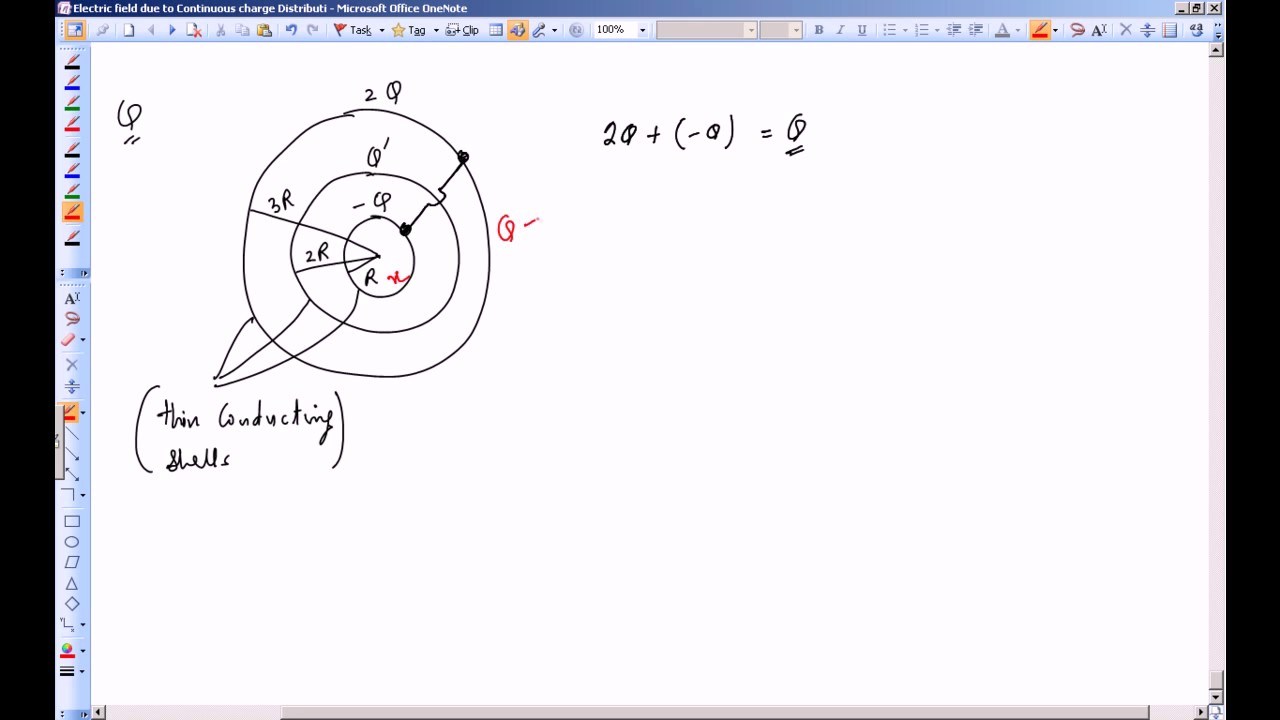 Electric field due to Continuous charge Distributi - Microsoft Office OneNote
Task
Tag
Clip
100%
B I U
Q
2 Q
Q'
- Q
3R
2R
R x
2Q + (-Q) = Q
Q -
(thin Conducting
shells)